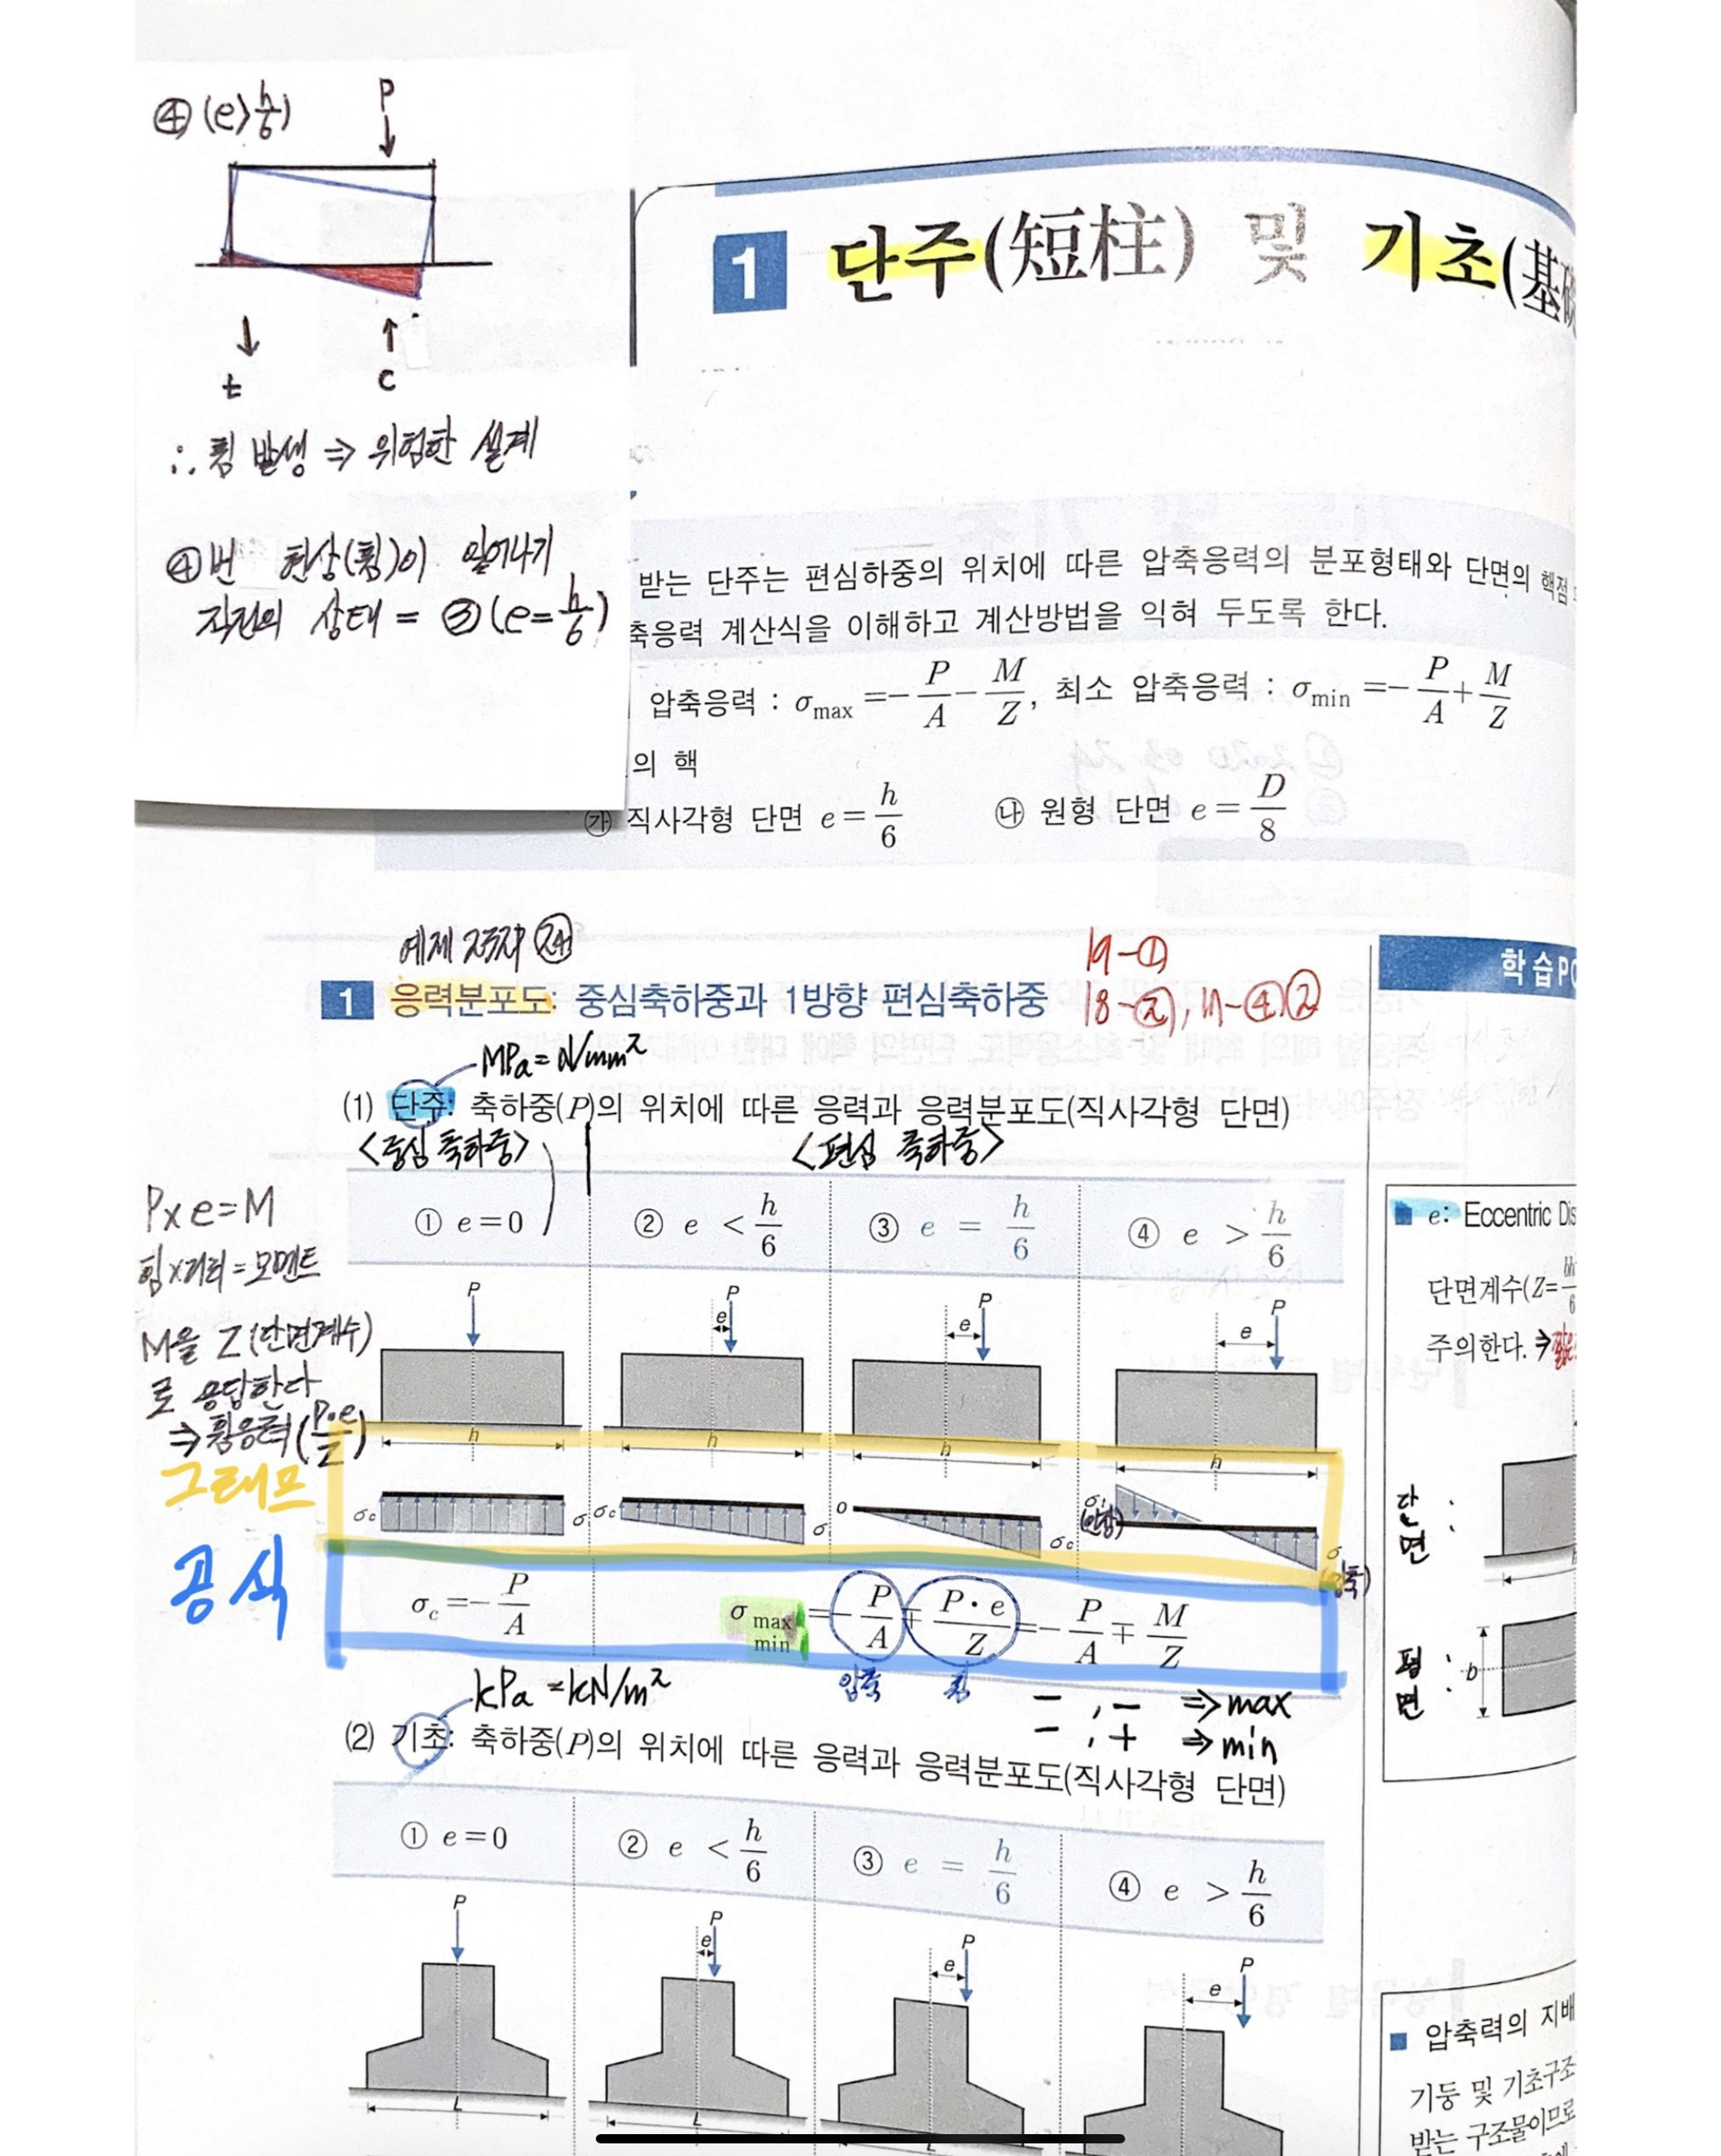 ④ (e>h/6)
P
t
C
∴ 휨 발생 ⇒ 위험한 설계
④번 현상(휨)이 일어나기
직전의 상태 = ③(e=h/6)
1 단주(短柱) 및 기초(基礎
받는 단주는 편심하중의 위치에 따른 압축응력의 분포형태와 단면의 핵점
축응력 계산식을 이해하고 계산방법을 익혀 두도록 한다.
압축응력 : σmax =-P/A-M/Z, 최소 압축응력 : σmin =-P/A+M/Z
의 핵
㉮ 직사각형 단면 e=h/6 ㉯ 원형 단면 e=D/8
예제
19-①
18-②, 11-④②
학습PO
1 응력분포도: 중심축하중과 1방향 편심축하중
MPa=N/mm²
(1) 단주: 축하중(P)의 위치에 따른 응력과 응력분포도(직사각형 단면)
<중심 축하중> <편심 축하중>
① e=0 ② e < h/6 ③ e = h/6 ④ e > h/6
P×e=M
힘×거리=모멘트
M을 Z(단면계수)
로 응답한다
⇒휨응력(P·e/Z)
P P P P
e e e
h h h h
그래프
σc σ σc σ 0 σc σt (인장) σ
공식
σc=-P/A σ max min =-P/A∓P·e/Z=-P/A∓M/Z
압축 휨
- , - ⇒max
- , + ⇒min
kPa=kN/m²
(2) 기초: 축하중(P)의 위치에 따른 응력과 응력분포도(직사각형 단면)
① e=0 ② e < h/6 ③ e = h/6 ④ e > h/6
P P P P
e e e
L L L
e: Eccentric Dis
단면계수(Z=bh/6
주의한다. ⇒
단면 :
평면 :
b
압축력의 지배
기둥 및 기초구조
받는 구조물이므로